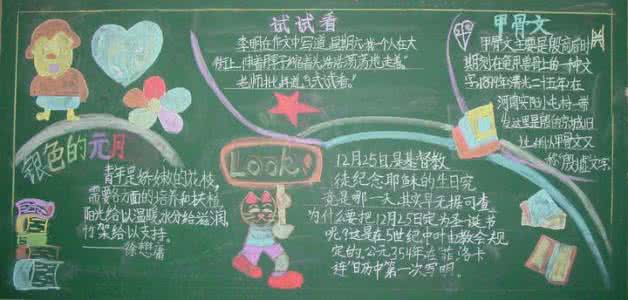 试试看
李明在作文中写道,星期六我一个人在大
街上,伸着脖子缩着头浩浩荡荡地走着。
老师批道:"试试看。"
甲骨文
甲骨文主要是殷商后时
期刻在龟甲兽骨上的一种文
字,1899年清光二十五年,在
河南安阳小屯村一带
这里是殷的京城旧
址
银色的元月
青年是娇嫩的花枝,
需要多方面的培养和扶植
阳光给以温暖水分给滋润,
竹架给以支持。
Look!
12月25日是基督教
徒纪念耶稣的生日究
竟是哪一天,其实早无据可查
为什么要把12月25日定为圣诞节
呢?这是在5世纪中叶由教会规
定的,公元354年在菲洛卡
连日历中第一次写明。